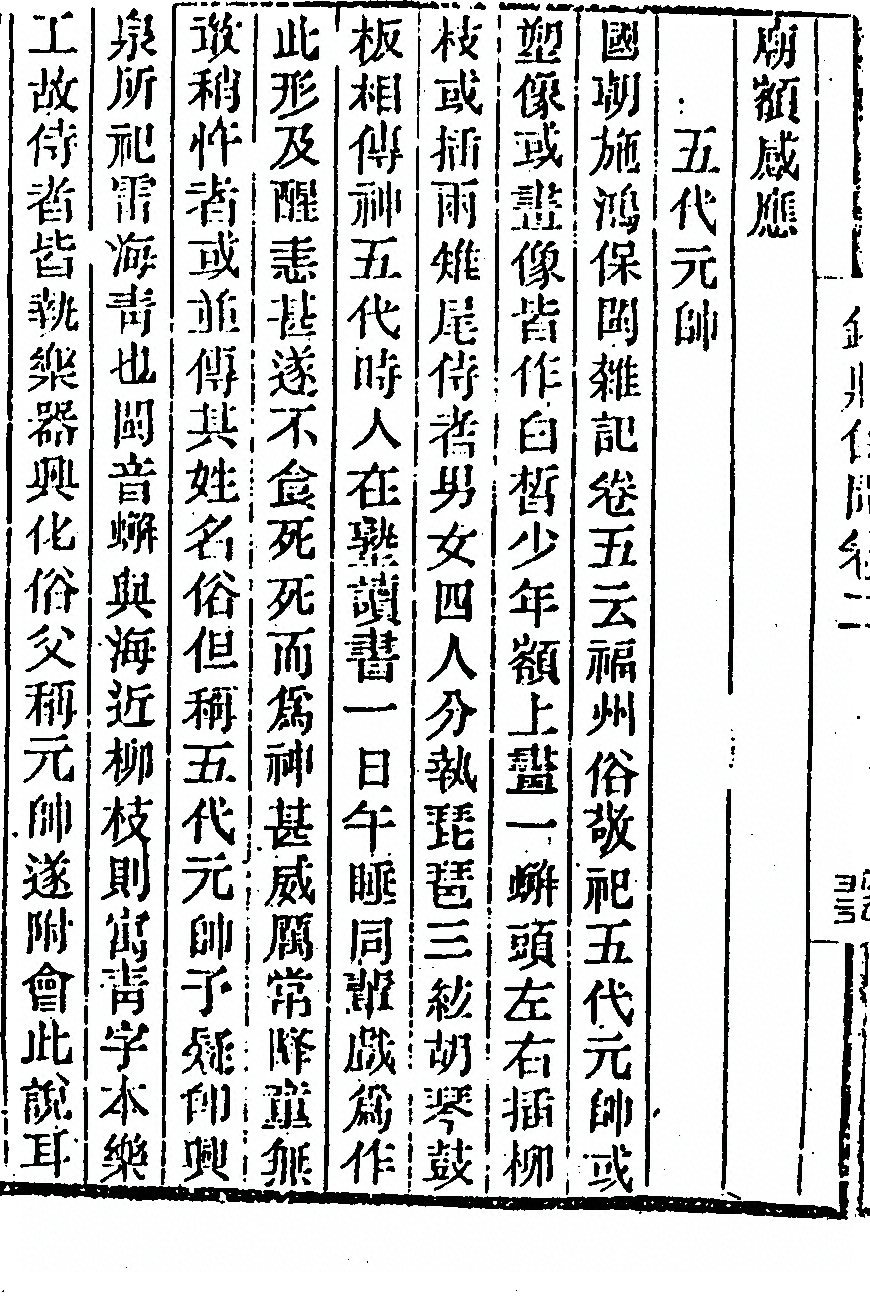 廟額感應
五代元帥
國朝施鴻保閩雜記卷五云福州俗敬祀五代元帥或
塑像或畫像皆作白皙少年額上畫一蠏頭左右插柳
枝或插兩雉尾侍者男女四人分執琵琶三絃胡琴鼓
板相傳神五代時人在塾讀書一日午睡同輩戲爲作
此形及醒恚甚遂不食死死而爲神甚威厲常降童無
敢稍忤者或並傳其姓名俗但稱五代元帥予疑卽興
泉所祀雷海靑也閩音蠏與海近柳枝則寓靑字本樂
工故侍者皆執樂器興化俗父稱元帥遂附會此說耳